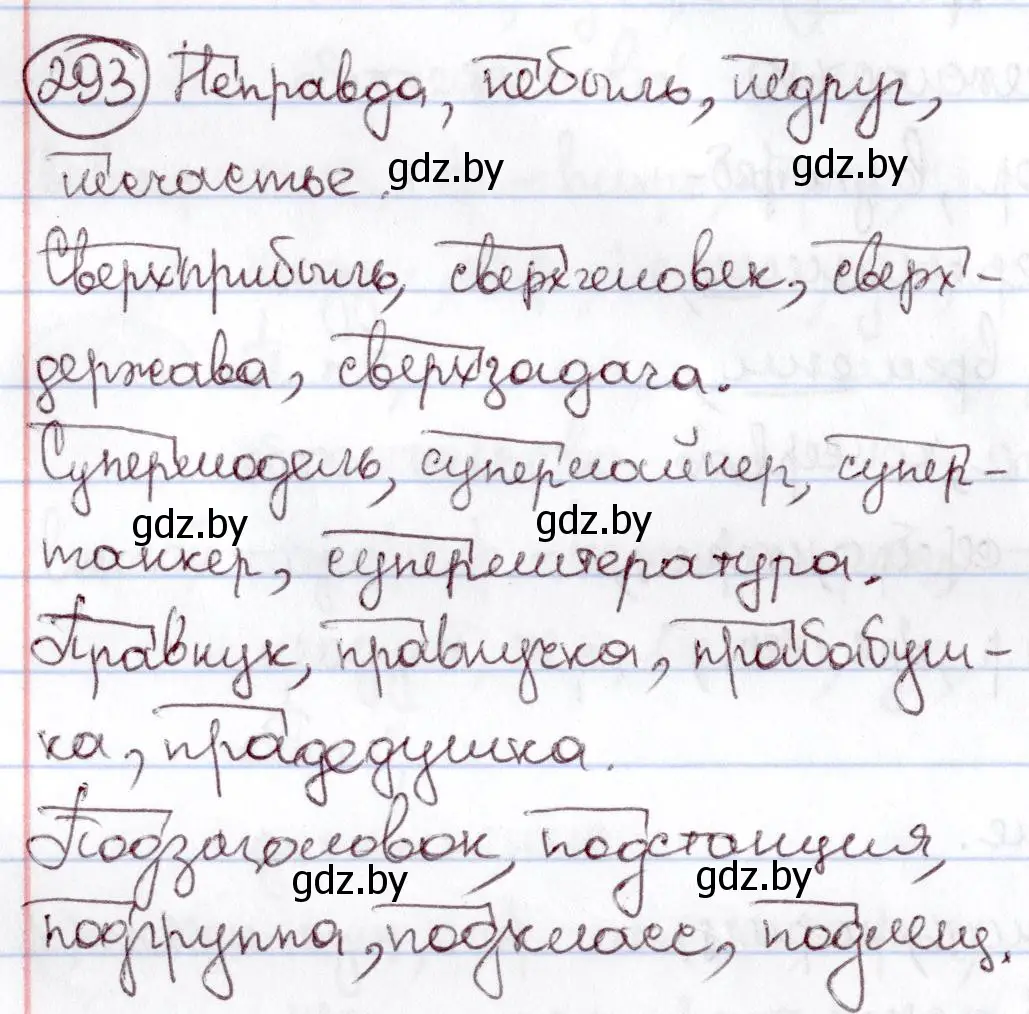 293 Неправда, небыль, недруг,
несчастье.
gdz.by
gdz.by
Сверхприбыль, сверхчеловек, сверх-
держава, сверхзадача.
Супермодель, суперлайнер, супер-
gdz.by
gdz.by
танкер, суперлитература.
Правнук, правнучка, прабабуш-
ка, прадедушка.
Подзаголовок, подстанция,
gdz.by
gdz.by
подгруппа, подкласс,